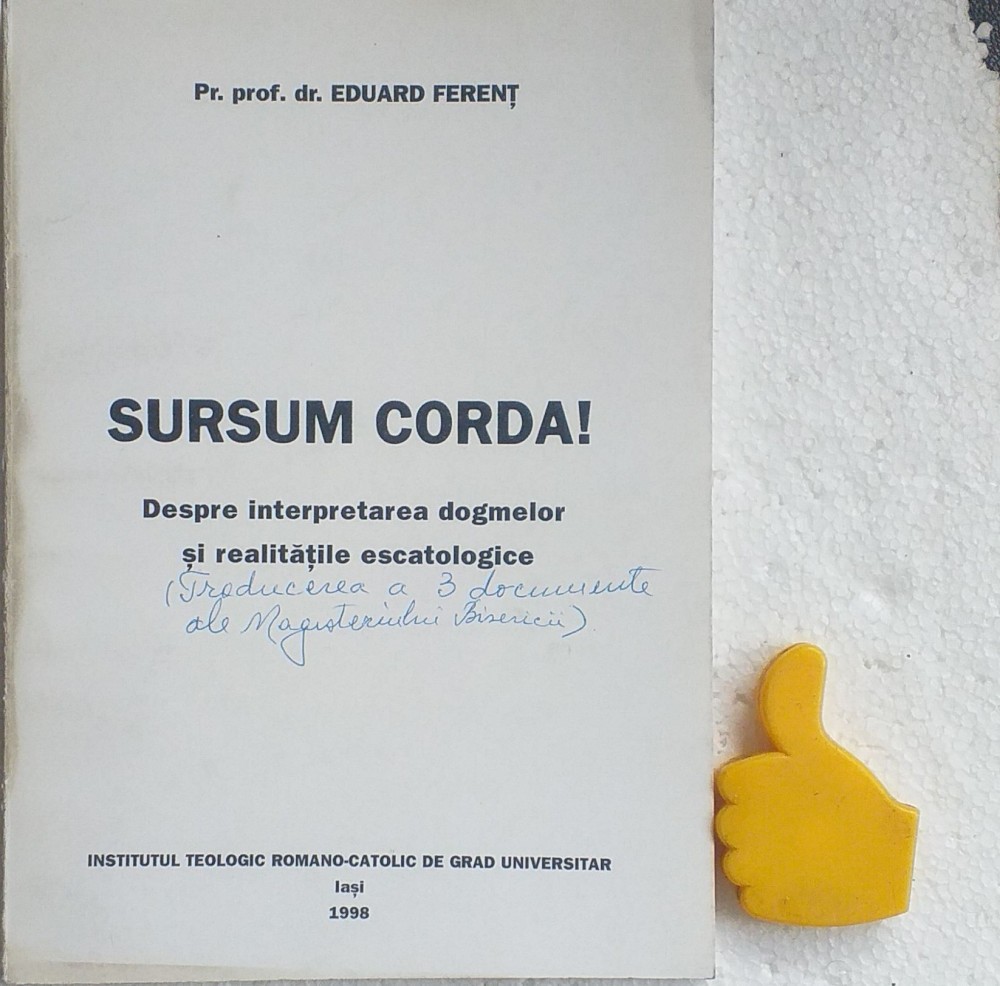 Pr. prof. dr. EDUARD FERENȚ
SURSUM CORDA!
Despre interpretarea dogmelor
și realitățile escatologice
(Traducerea a 3 documente
ale Magisteriului Bisericii)
INSTITUTUL TEOLOGIC ROMANO-CATOLIC DE GRAD UNIVERSITAR
Iași
1998